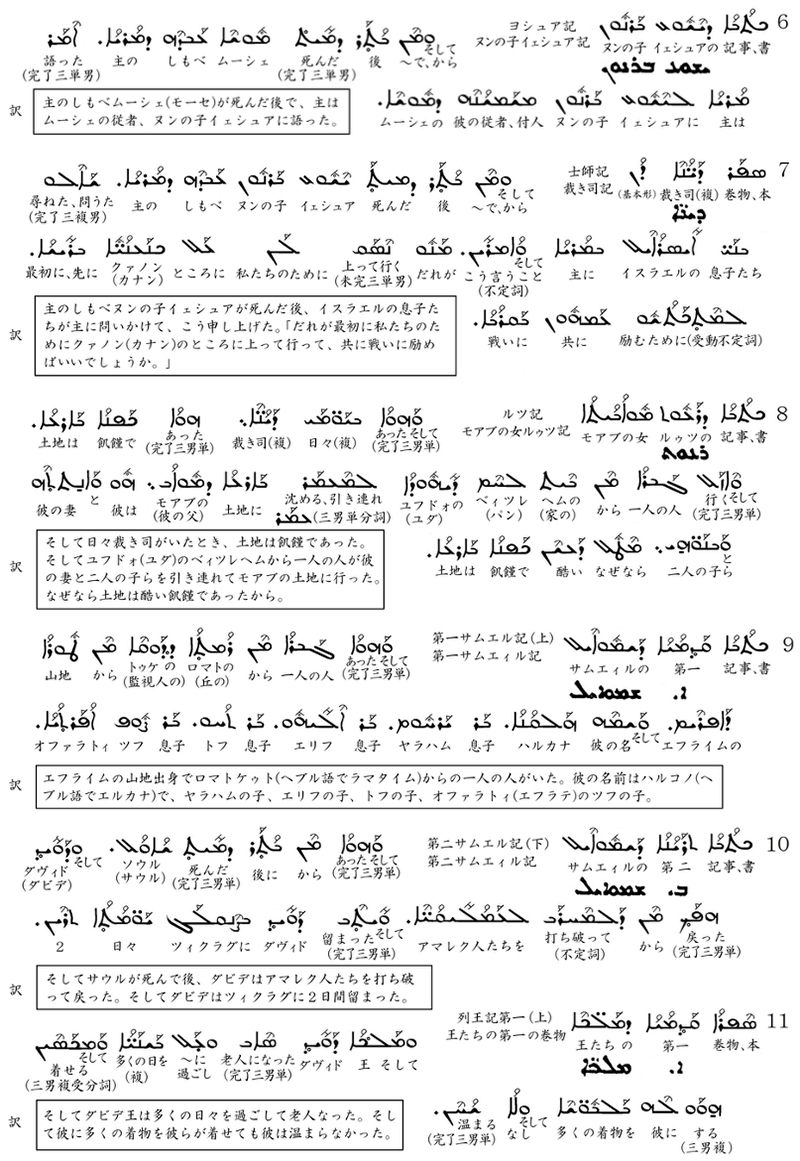 6 ܟܬܒܐ ܕܝܫܘܥ ܒܪܢܘܢ
ヨシュア記
ヌンの子イェシュア記
ヌンの子 イェシュアの 記事、書
ܝܫܘܥ ܒܪܢܘܢ
ܘܡܢ ܒܬܪ ܕܡܝܬ ܡܘܫܐ ܥܒܕܗ ܕܡܪܝܐ. ܐܡܪ
語った(完了三単男) 主の しもべ ムーシェ 死んだ(完了三単男) 後 そして～で、から
ܡܪܝܐ ܠܝܫܘܥ ܒܪܢܘܢ ܡܫܡܫܢܗ ܕܡܘܫܐ.
ムーシェの 彼の従者、付人 ヌンの子 イェシュアに 主は
訳
主のしもべムーシェ(モーセ)が死んだ後で、主は
ムーシェの従者、ヌンの子イェシュアに語った。
7 ܣܦܪ ܕܝܢ̈ܐ ܕܢ
士師記
裁き司記
(基本形) 裁き司(複) 巻物、本
ܕܝܢ̈ܐ
ܘܡܢ ܒܬܪ ܕܡܝܬ ܝܫܘܥ ܒܪܢܘܢ ܥܒܕܗ ܕܡܪܝܐ. ܫܐܠܘ
尋ねた、問うた(完了三複男) 主の しもべ ヌンの子 イェシュア 死んだ 後 そして～で、から
ܒܢܝ̈ ܐܝܣܪܐܝܠ ܒܡܪܝܐ ܘܐܡܪܝܢ. ܡܢܘ ܢܣܩ ܠܢ ܥܠ ܟܢܥܢܝ̈ܐ ܒܪܝܫܐ.
最初に、先に クァノン(カナン) ところに 私たちのために 上って行く(未完三単男) だれが そしてこう言うこと(不定詞) 主に イスラエルの 息子たち
ܠܡܬܟܬܫܘ ܥܡܗܘܢ ܒܩܪܒܐ.
戦いに 共に 励むために(受動不定詞)
訳
主のしもべヌンの子イェシュアが死んだ後、イスラエルの息子た
ちが主に問いかけて、こう申し上げた。「だれが最初に私たちのた
めにクァノン(カナン)のところに上って行って、共に戦いに励め
ばいいでしょうか。」
8 ܟܬܒܐ ܕܪܥܘܬ ܡܘܐܒܝܬܐ
ルツ記
モアブの女ルゥツ記
モアブの女 ルゥツの 記事、書
ܪܥܘܬ
ܘܗܘܐ ܒܝܘܡ̈ܝ ܕܝܢ̈ܐ. ܗܘܐ ܟܦܢܐ ܒܐܪܥܐ.
土地は 飢饉で あった(完了三男単) 裁き司(複) 日々(複) あったそして(完了三男単)
ܘܐܙܠ ܓܒܪܐ ܡܢ ܒܝܬ ܠܚܡ ܕܝܗܘܕܐ ܠܡܥܡܪ ܒܐܪܥܐ ܕܡܘܐܒ. ܗܘ ܘܐܢܬܬܗ
彼の妻 と 彼は モアブの(彼の父) 土地に 沈める、引き連れ(三男単分詞) ユフドォの(ユダ) ベィツレ(パン) ヘムの(家の) から 一人の人 行くそして(完了三男単)
ܥܡܪ
ܘܒܢܘ̈ܗܝ. ܡܛܠ ܕܥܫܢ ܟܦܢܐ ܒܐܪܥܐ.
土地は 飢饉で 酷い なぜなら 二人の子ら と
訳
そして日々裁き司がいたとき、土地は飢饉であった。
そしてユフドォ(ユダ)のベィツレヘムから一人の人が彼
の妻と二人の子らを引き連れてモアブの土地に行った。
なぜなら土地は酷い飢饉であったから。
9 ܟܬܒܐ ܩܕܡܝܐ ܕܫܡܘܐܝܠ
第一サムエル記(上)
第一サムエィル記
サムエィルの 第一 記事、書
ܐ. ܫܡܘܐܝܠ
ܘܗܘܐ ܓܒܪܐ ܡܢ ܪܡܬܐ ܕܕܘܩܐ ܡܢ ܛܘܪܐ
山地 から トゥケの(監視人の) ロマトの(丘の) から 一人の人 あったそして(完了三男単)
ܕܐܦܪܝܡ. ܘܫܡܗ ܗܠܩܢܐ. ܒܪ ܝܪܘܚܡ. ܒܪ ܐܠܝܗܘ. ܒܪ ܬܘܚ. ܒܪ ܨܘܦ ܐܦܪܬܝܐ.
オファラトィ ツフ 息子 トフ 息子 エリフ 息子 ヤラハム 息子 ハルカナ 彼の名そして エフライムの
訳
エフライムの山地出身でロマトケゥト(ヘブル語でラマタイム)からの一人の人がいた。彼の名前はハルコノ(ヘ
ブル語でエルカナ)で、ヤラハムの子、エリフの子、トフの子、オファラトィ(エフラテ)のツフの子。
10 ܟܬܒܐ ܬܪܝܢܐ ܕܫܡܘܐܝܠ
第二サムエル記(下)
第二サムエィル記
サムエィルの 第二 記事、書
ܒ. ܫܡܘܐܝܠ
ܘܗܘܐ ܡܢ ܒܬܪ ܕܡܝܬ ܫܐܘܠ. ܘܕܘܝܕ
ダヴィド(ダビデ) そして ソウル(サウル) 死んだ(完了三男単) 後に から あったそして(完了三男単)
ܗܦܟ ܡܢ ܕܠܡܚܪܒ ܠܥܡܠܩܝ̈ܐ. ܘܝܬܒ ܕܘܝܕ ܒܨܢܩܠܓ ܝܘܡ̈ܬܐ ܬܪܝܢ.
2 日々 ツィクラグに ダヴィド 留まったそして(完了三男単) アマレク人たちを 打ち破って(不定詞) から 戻った(完了三男単)
訳
そしてサウルが死んで後、ダビデはアマレク人たちを打ち破
って戻った。そしてダビデはツィクラグに2日間留まった。
11 ܣܦܪܐ ܩܕܡܝܐ ܕܡܠܟ̈ܐ
列王記第一(上)
王たちの第一の巻物
王たちの 第一 巻物、本
ܐ. ܡܠܟ̈ܐ
ܘܡܠܟܐ ܕܘܝܕ ܣܐܒ ܘܥܠ ܒܫܢܝ̈ܐ ܘܡܟܣܝܢ
そして着せる(三男複受分詞) 多くの日を(複) ～に過ごし 老人になった(完了三男単) ダヴィド 王 そして
ܗܘܘ ܠܗ ܒܠܒܘܫ̈ܐ ܘܠܐ ܫܚܢ.
温まる(完了三男単) そしてなし 多くの着物を 彼に する(三男複)
訳
そしてダビデ王は多くの日々を過ごして老人なった。そし
て彼に多くの着物を彼らが着せても彼は温まらなかった。